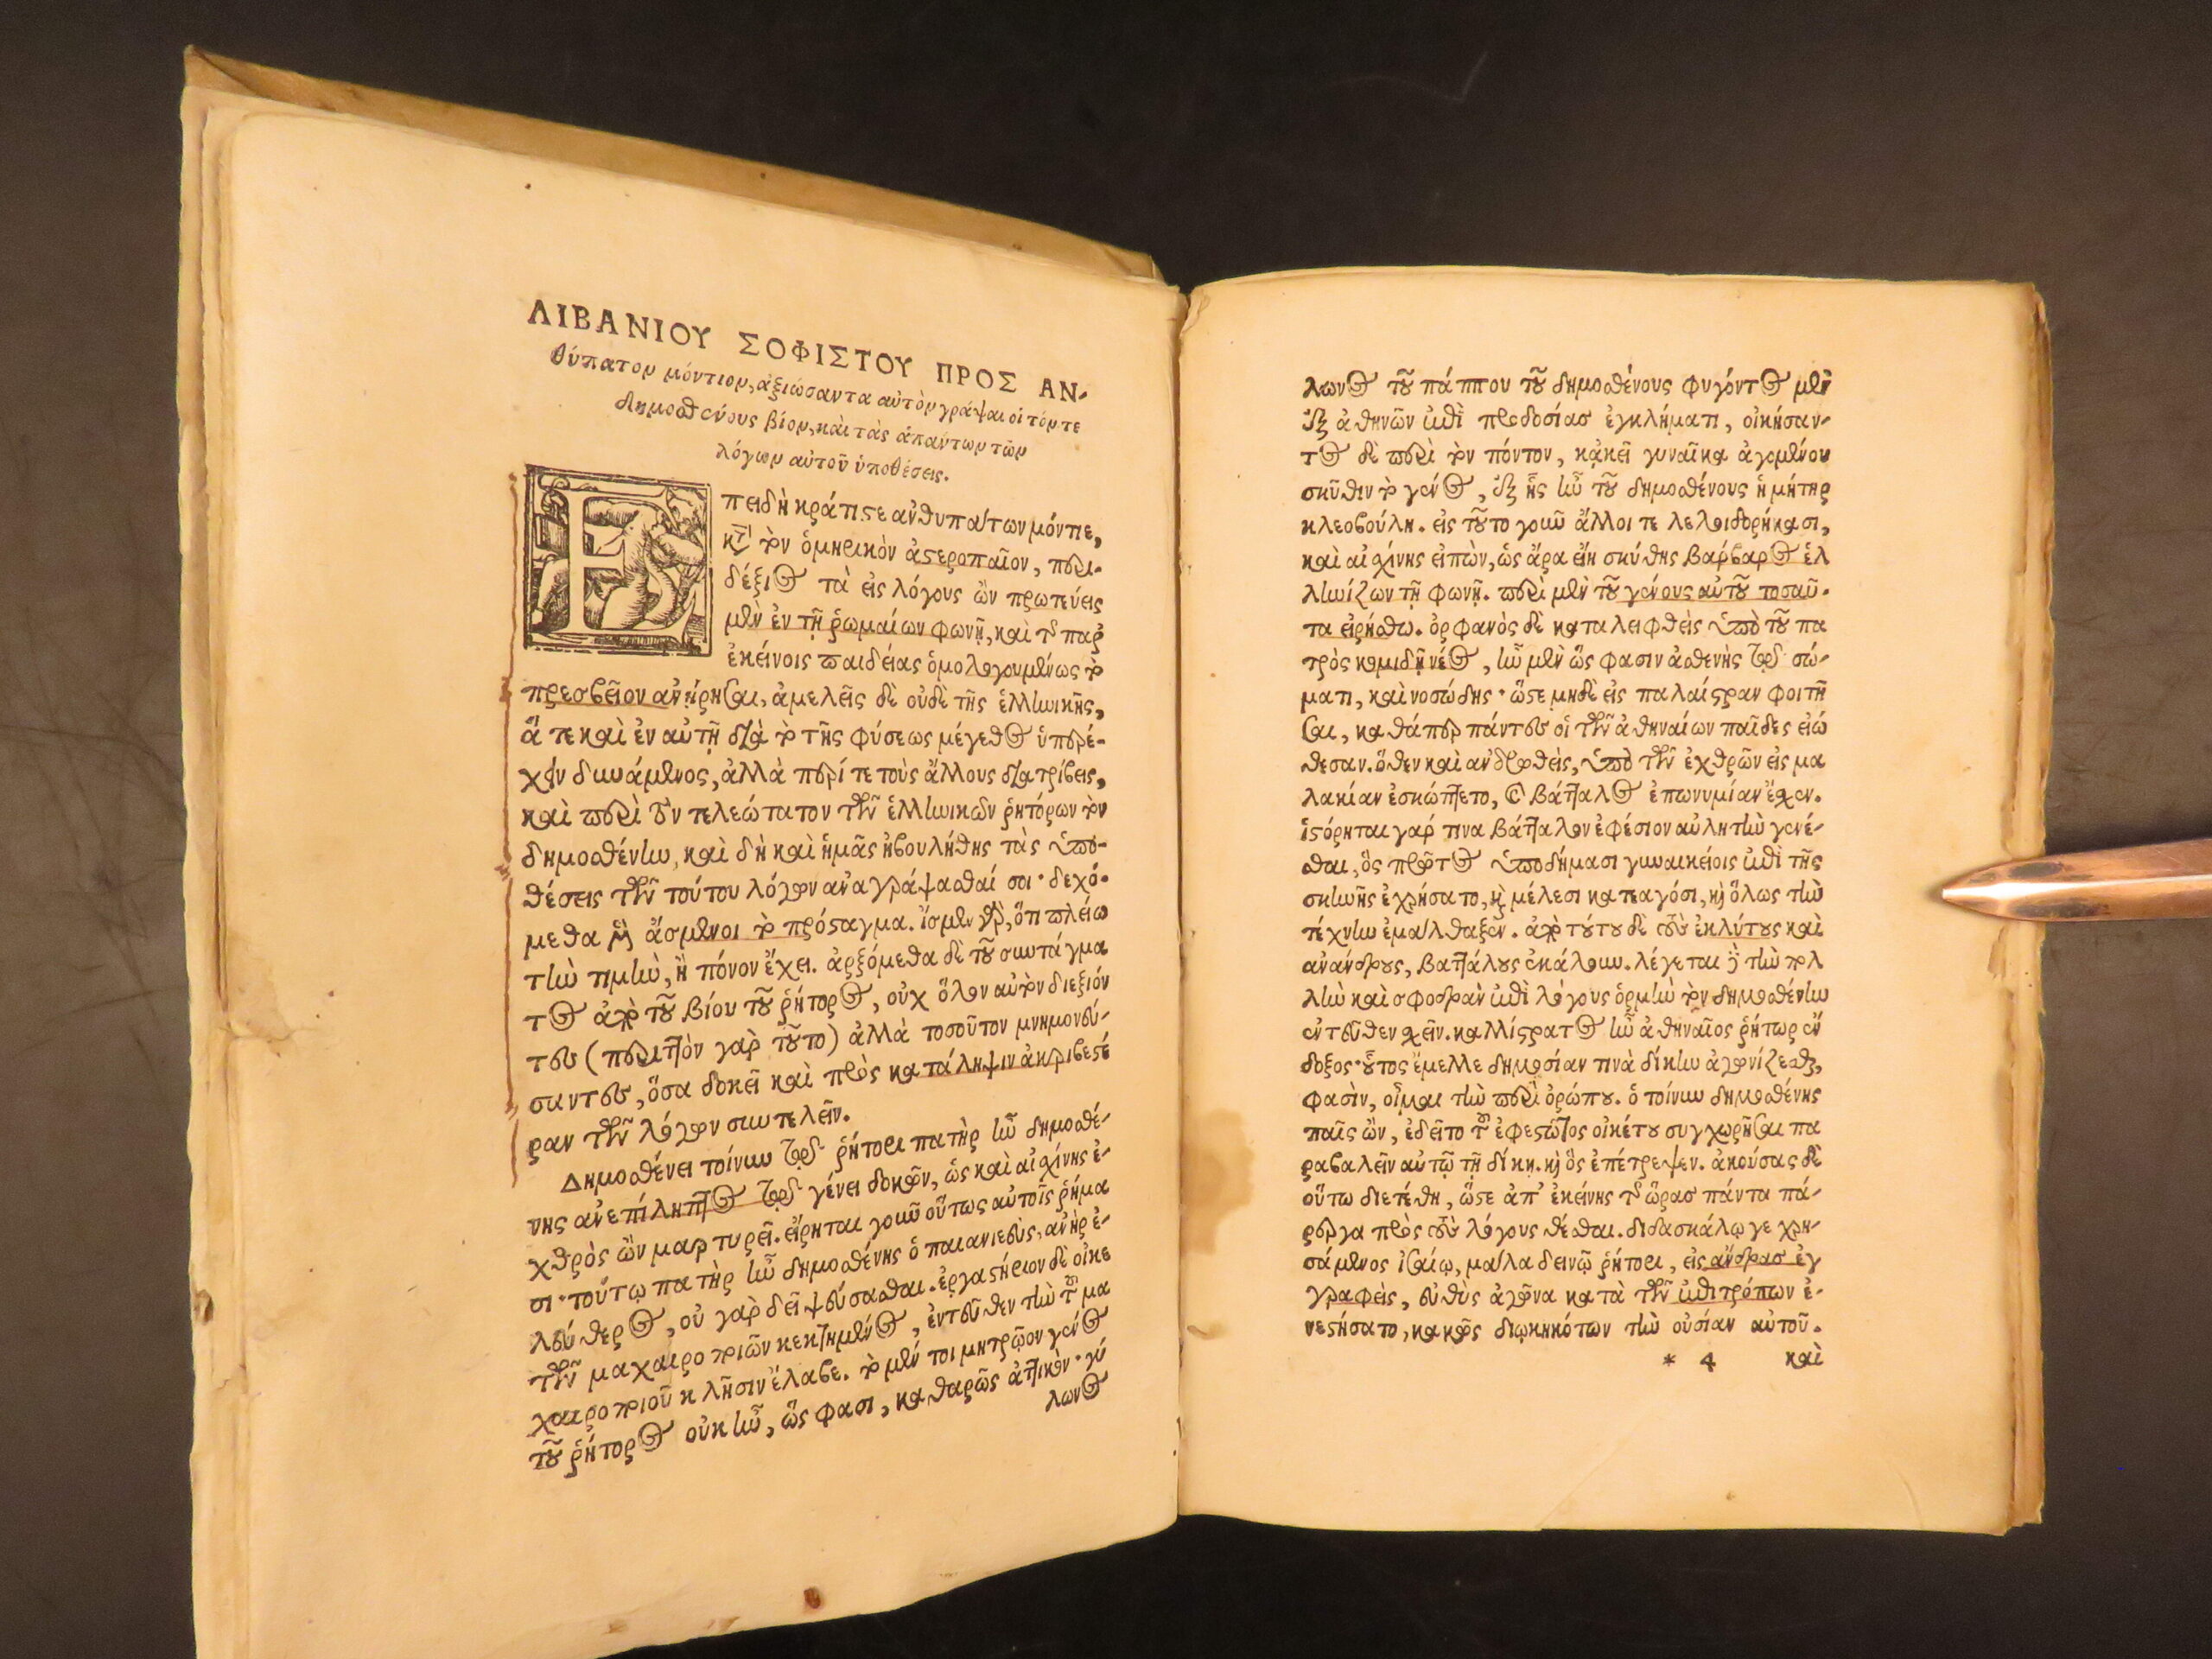 ΛΙΒΑΝΙΟΥ ΣΟΦΙΣΤΟΥ ΠΡΟΣ ΑΝ-
θύπατον μόντιον, ἀξιώσαντα αὐτὸν γράψαι οἱ τόν τε
δημοσθένους βίον, καὶ τὰς ἁπάντων τῶν
λόγων αὐτοῦ ὑποθέσεις.
Ἐπειδὴ κράτιστε ἀνθυπάτων μόντιε,
κατὰ τὸν ὁμηρικὸν ἀστεροπαῖον, περι-
δέξιος τὰ εἰς λόγους ὢν πρωτεύεις
μὲν ἐν τῇ ῥωμαίων φωνῇ, καὶ τῆς παρ᾽
ἐκείνοις παιδείας ὁμολογουμένως τὸ
πρεσβεῖον ἀνῄρησαι, ἀμελεῖς δὲ οὐδὲ τῆς ἑλληνικῆς,
ἅ τε καὶ ἐν αὐτῇ διὰ τὸ τῆς φύσεως μέγεθος ὑπερέ-
χειν δυνάμενος, ἀλλὰ περί τε τοὺς ἄλλους διατρίβεις,
καὶ περὶ τὸν τελεώτατον τῶν ἑλληνικῶν ῥητόρων τὸν
δημοσθένην, καὶ δὴ καὶ ἡμᾶς ἠβουλήθης τὰς ὑπο-
θέσεις τῶν τούτου λόγων ἀναγράψασθαί σοι· δεχό-
μεθα δὲ ἄσμενοι τὸ πρόσταγμα. ἴσμεν γὰρ, ὅτι πλείω
τὴν τιμὴν, ἢ πόνον ἔχει. ἀρξόμεθα δὲ τοῦ συντάγμα
τος ἀπὸ τοῦ βίου τοῦ ῥήτορος, οὐχ ὅλον αὐτὸν διεξιόν
τες (περιττὸν γὰρ τοῦτο) ἀλλὰ τοσοῦτον μνημονεύ-
σαντες, ὅσα δοκεῖ καὶ πρὸς κατάληψιν ἀκριβεστέ
ραν τῶν λόγων συντελεῖν.
Δημοσθένει τοίνυν τῷ ῥήτορι πατὴρ ἦν δημοσθέ-
νης ἀνεπίληπτος τῷ γένει δοκῶν, ὡς καὶ αἰσχίνης ἐ-
χθρὸς ὢν μαρτυρεῖ. εἴρηται γοῦν οὕτως αὐτοῖς ῥήμα
σι· τούτῳ πατὴρ ἦν δημοσθένης ὁ παιανιεὺς, ἀνὴρ ἐ-
λεύθερος, οὐ γὰρ δεῖ ψεύσασθαι. ἐργαστήριον δὲ οἰκε
τῶν μαχαιροποιῶν κεκτημένος, ἐντεῦθεν τὴν τοῦ μα
χαιροποιοῦ κλῆσιν ἔλαβε. τὸ μέν τοι μητρῷον γένος
τοῦ ῥήτορος οὐκ ἦν, ὥς φασι, καθαρῶς ἀττικὸν· γύ
λωνος
λωνος τοῦ πάππου τοῦ δημοσθένους φυγόντος μὲν
ἐξ ἀθηνῶν ἐπὶ προδοσίας ἐγκλήματι, οἰκήσαν-
τος δὲ περὶ τὸν πόντον, κἀκεῖ γυναῖκα ἀγομένου
σκῦθιν τὸ γένος, ἐξ ἧς ἦν τοῦ δημοσθένους ἡ μήτηρ
κλεοβούλη. εἰς τοῦτο γοῦν ἄλλοι τε λελοιδορήκασι,
καὶ αἰσχίνης εἰπὼν, ὡς ἄρα εἴη σκύθης βάρβαρος ἑλ
ληνίζων τῇ φωνῇ. περὶ μὲν τοῦ γένους αὐτοῦ τοσαῦ-
τα εἰρήσθω. ὀρφανὸς δὲ καταλειφθεὶς ὑπὸ τοῦ πα
τρὸς κομιδῇ νέος, ἦν μὲν ὥς φασιν ἀσθενὴς τῷ σώ-
ματι, καὶ νοσώδης· ὥστε μηδὲ εἰς παλαίστραν φοιτῆ
σαι, καθάπερ πάντες οἱ τῶν ἀθηναίων παῖδες εἰώ
θεσαν. ὅθεν καὶ ἀνδρωθεὶς, ὑπὸ τῶν ἐχθρῶν εἰς μα
λακίαν ἐσκώπτετο, καὶ βάτταλος ἐπωνυμίαν ἔσχεν.
ἱστόρηται γάρ τινα βάτταλον ἐφέσιον αὐλητὴν γενέ-
σθαι, ὃς πρῶτος ὑποδήμασι γυναικείοις ἐπὶ τῆς
σκηνῆς ἐχρήσατο, καὶ μέλεσι κατεαγόσι, καὶ ὅλως τὴν
τέχνην ἐμάλθαξεν. ἀπὸ τούτου δὲ τοὺς ἐκλύτους καὶ
ἀνάνδρους, βαττάλους ἐκάλουν. λέγεται δὲ τὴν πολ
λὴν καὶ σφοδρὰν ἐπὶ λόγους ὁρμὴν τὸν δημοσθένην
ἐντεῦθεν σχεῖν. καλλίστρατος ἦν ἀθηναῖος ῥήτωρ ἔν
δοξος· οὗτος ἔμελλε δημοσίαν τινὰ δίκην ἀγωνίζεσθαι,
φασὶν, οἶμαι τὴν περὶ ὀρώπου. ὁ τοίνυν δημοσθένης
παῖς ὢν, ἐδεῖτο τοῦ ἐφεστῶτος οἰκέτου συγχωρῆσαι πα
ραβαλεῖν αὐτῷ τῇ δίκῃ. καὶ ὃς ἐπέτρεψεν. ἀκούσας δὲ
οὕτω διετέθη, ὥστε ἀπ᾽ ἐκείνης τῆς ὥρας πάντα πά-
ρεργα πρὸς τοὺς λόγους θέσθαι. διδασκάλῳ γε χρη-
σάμενος ἰσαίῳ, μάλα δεινῷ ῥήτορι, εἰς ἄνδρας ἐγ
γραφεὶς, εὐθὺς ἀγῶνα κατὰ τῶν ἐπιτρόπων ἐ-
νεστήσατο, κακῶς διῳκηκότων τὴν οὐσίαν αὐτοῦ.
* 4 καὶ